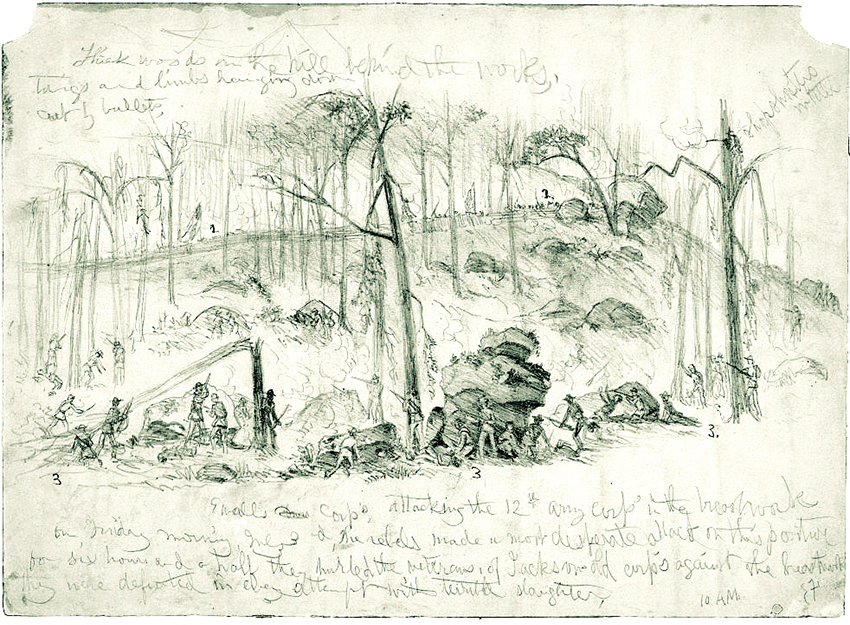 Thick woods on the hill behind the works,
twigs and limbs hanging down
cut by bullets
2.
2.
3
3
3.
Ewells Corps, attacking the 12th army corps in the breastworks
on Friday morning, the rebels made a most desperate attack on this position
for six hours and a half they hurled the veterans of Jackson old corps against the breastworks
they were defeated in every attempt with terrible slaughter,
10 AM